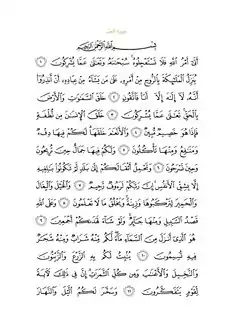 سورة النحل
بِسْمِ اللَّهِ الرَّحْمَٰنِ الرَّحِيمِ
أَتَىٰ أَمْرُ اللَّهِ فَلَا تَسْتَعْجِلُوهُ سُبْحَانَهُ وَتَعَالَىٰ عَمَّا يُشْرِكُونَ ١
يُنَزِّلُ الْمَلَائِكَةَ بِالرُّوحِ مِنْ أَمْرِهِ عَلَىٰ مَن يَشَاءُ مِنْ عِبَادِهِ أَنْ أَنذِرُوا
أَنَّهُ لَا إِلَٰهَ إِلَّا أَنَا فَاتَّقُونِ ٢ خَلَقَ السَّمَاوَاتِ وَالْأَرْضَ
بِالْحَقِّ تَعَالَىٰ عَمَّا يُشْرِكُونَ ٣ خَلَقَ الْإِنسَانَ مِن نُّطْفَةٍ
فَإِذَا هُوَ خَصِيمٌ مُّبِينٌ ٤ وَالْأَنْعَامَ خَلَقَهَا لَكُمْ فِيهَا دِفْءٌ
وَمَنَافِعُ وَمِنْهَا تَأْكُلُونَ ٥ وَلَكُمْ فِيهَا جَمَالٌ حِينَ تُرِيحُونَ
وَحِينَ تَسْرَحُونَ ٦ وَتَحْمِلُ أَثْقَالَكُمْ إِلَىٰ بَلَدٍ لَّمْ تَكُونُوا بَالِغِيهِ
إِلَّا بِشِقِّ الْأَنفُسِ إِنَّ رَبَّكُمْ لَرَءُوفٌ رَّحِيمٌ ٧ وَالْخَيْلَ وَالْبِغَالَ
وَالْحَمِيرَ لِتَرْكَبُوهَا وَزِينَةً وَيَخْلُقُ مَا لَا تَعْلَمُونَ ٨ وَعَلَى اللَّهِ
قَصْدُ السَّبِيلِ وَمِنْهَا جَائِرٌ وَلَوْ شَاءَ لَهَدَاكُمْ أَجْمَعِينَ ٩
هُوَ الَّذِي أَنزَلَ مِنَ السَّمَاءِ مَاءً لَّكُم مِّنْهُ شَرَابٌ وَمِنْهُ شَجَرٌ
فِيهِ تُسِيمُونَ ١٠ يُنبِتُ لَكُم بِهِ الزَّرْعَ وَالزَّيْتُونَ
وَالنَّخِيلَ وَالْأَعْنَابَ وَمِن كُلِّ الثَّمَرَاتِ إِنَّ فِي ذَٰلِكَ لَآيَةً
لِّقَوْمٍ يَتَفَكَّرُونَ ١١ وَسَخَّرَ لَكُمُ اللَّيْلَ وَالنَّهَارَ